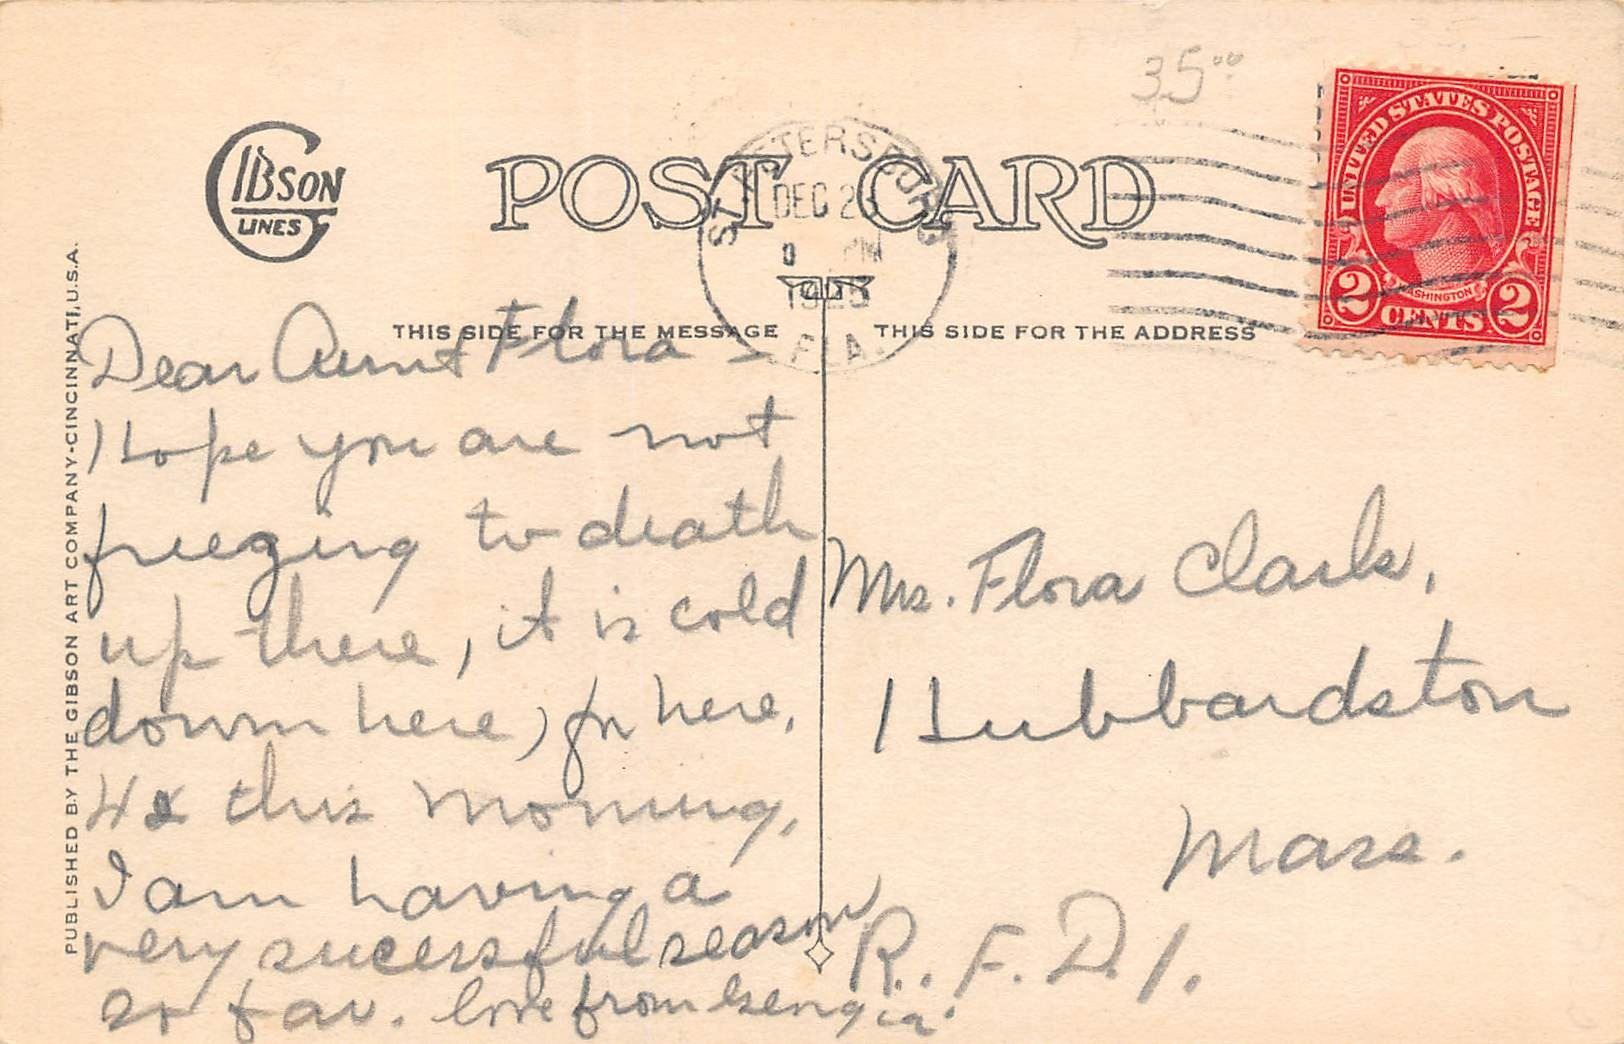 35⁰⁰
GIBSON
LINES
POST CARD
ST. PETERSBURG
DEC 2
PM
FLA.
UNITED STATES POSTAGE
WASHINGTON
2 CENTS 2
THIS SIDE FOR THE MESSAGE
THIS SIDE FOR THE ADDRESS
PUBLISHED BY THE GIBSON ART COMPANY-CINCINNATI, U.S.A.
Dear Aunt Flora -
I hope you are not
freezing to death
up there, it is cold
down here, for here.
this morning,
I am having a
very sucessful season
so far. love from
Mrs. Flora Clark,
Hubbardston
Mass.
R. F. D. 1.